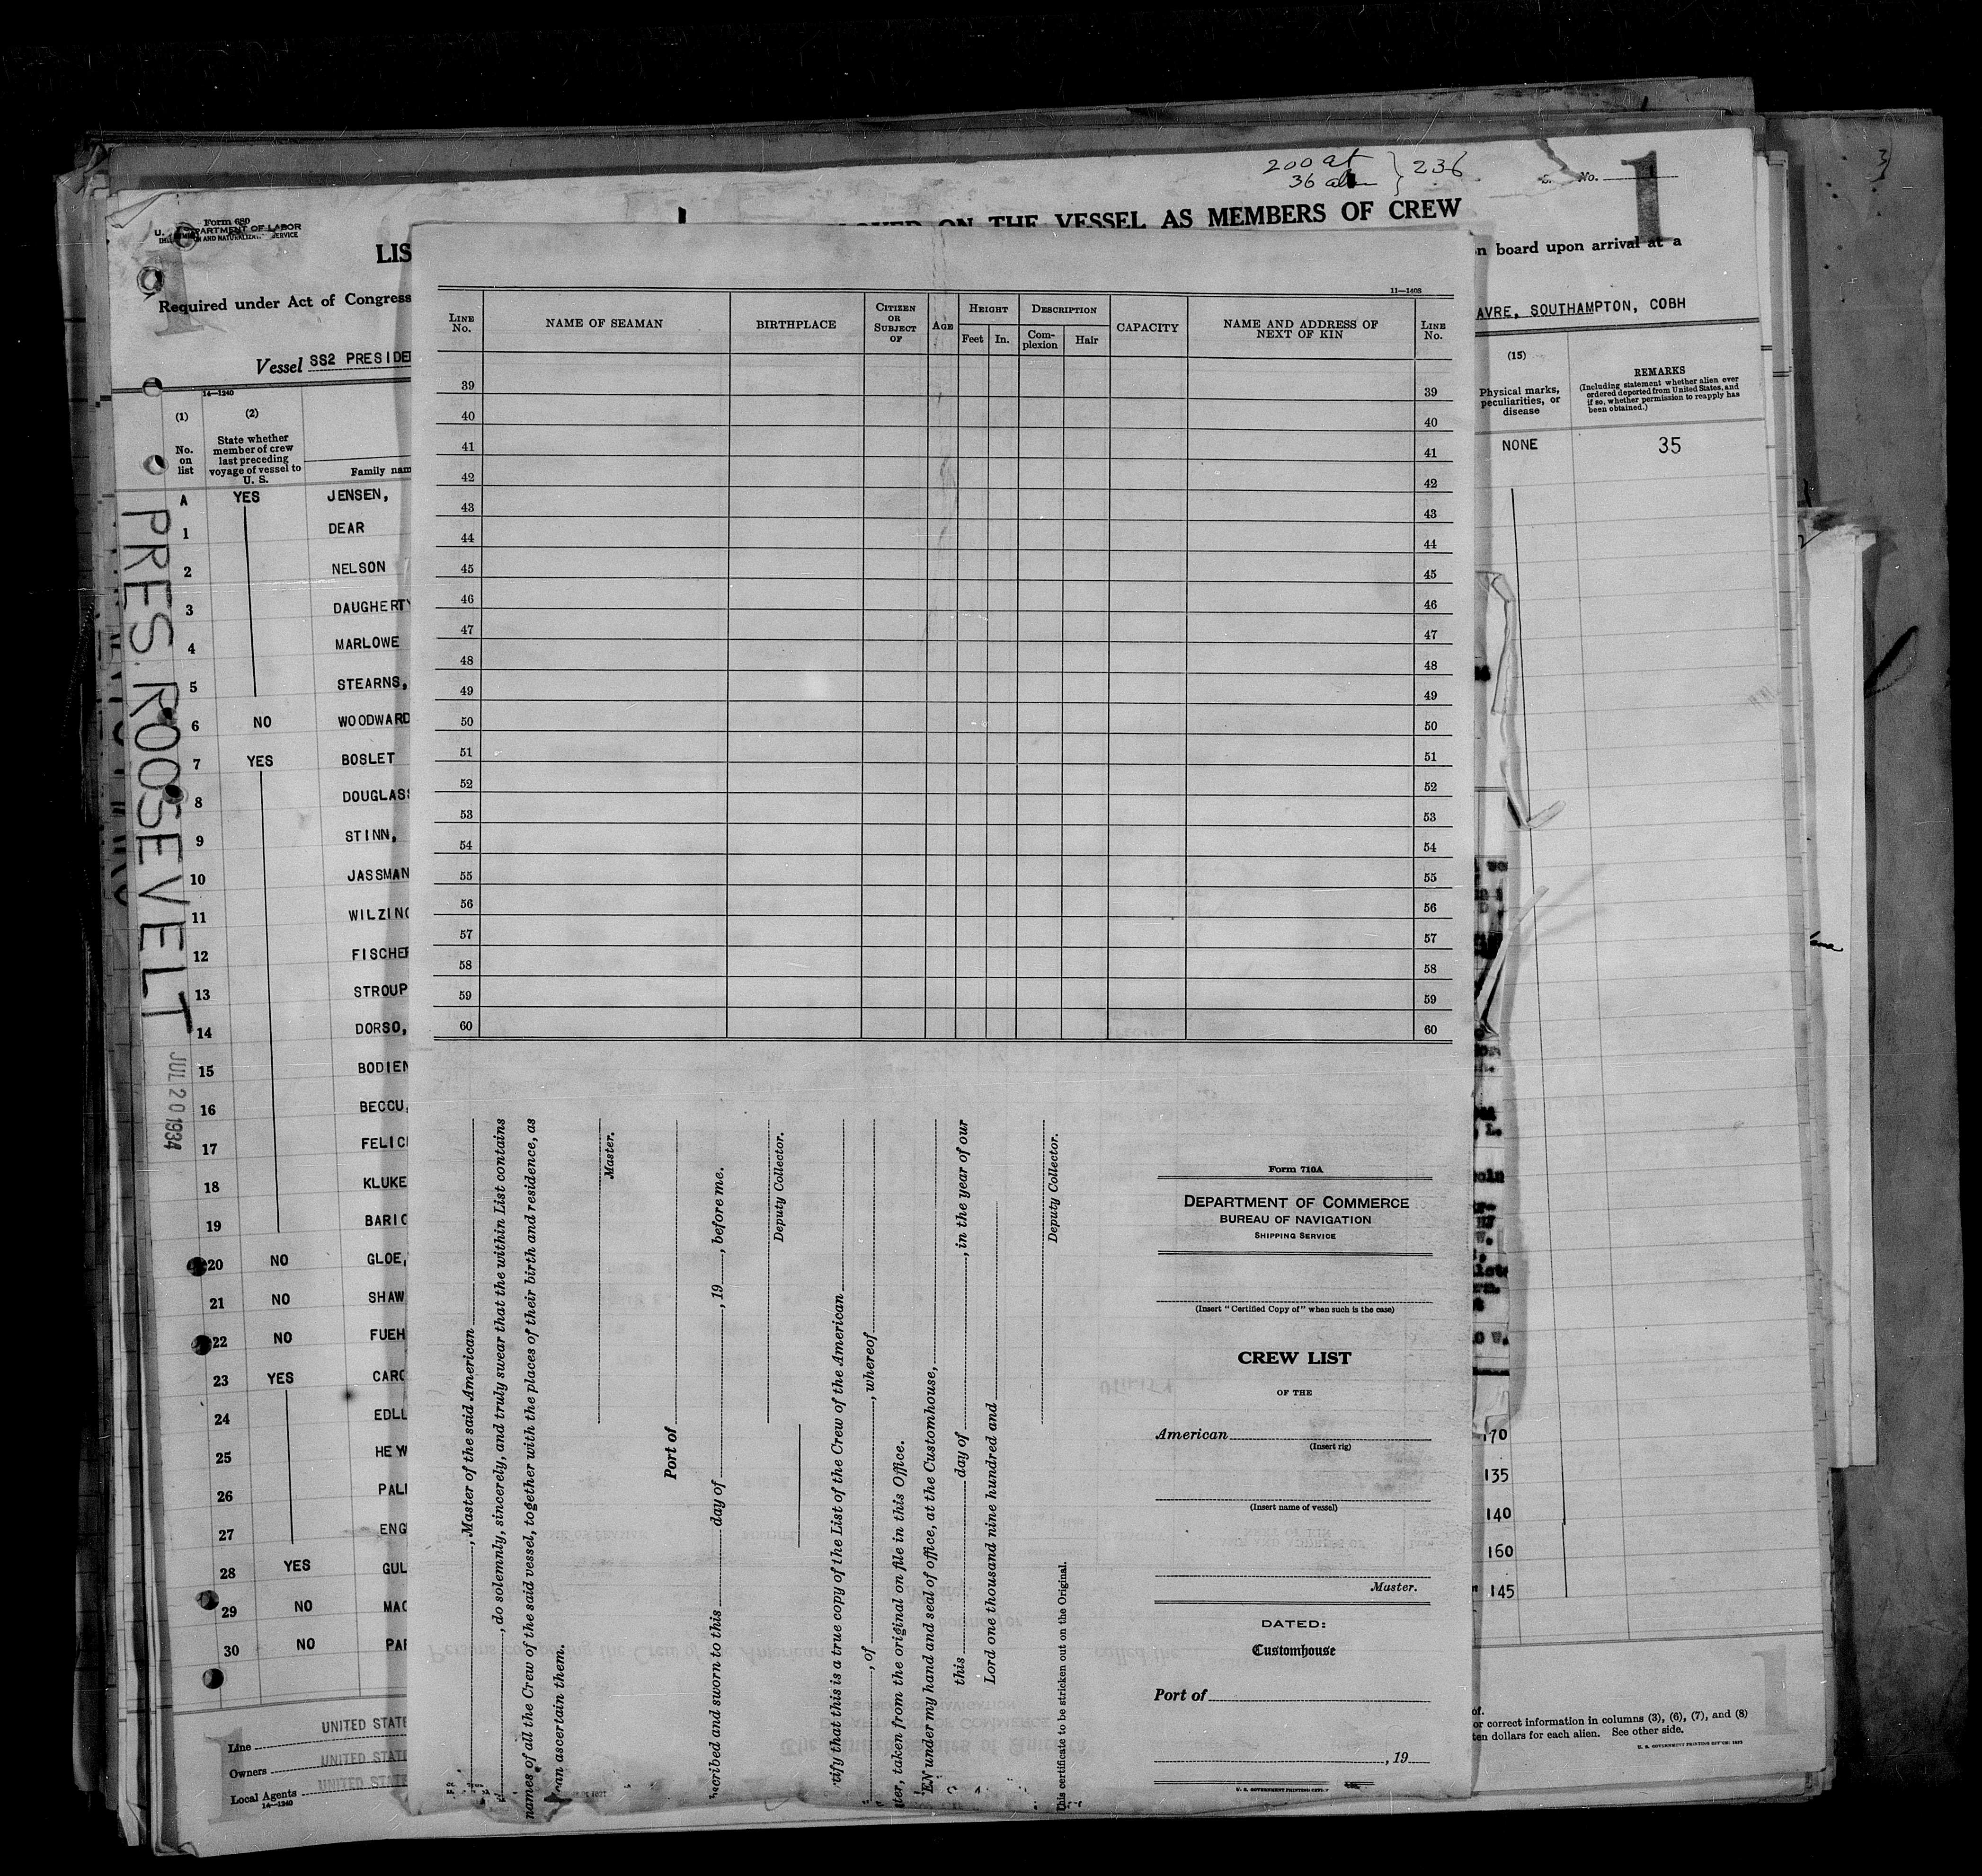 200 at
36 aln } 236
No.
1
Form 680
U. S. DEPARTMENT OF LABOR
IMMIGRATION AND NATURALIZATION SERVICE
ON THE VESSEL AS MEMBERS OF CREW
LIS
Required under Act of Congress
on board upon arrival at a
AVRE, SOUTHAMPTON, COBH
Vessel SS2 PRESIDE
14—1240
(1) (2)
No. on list
State whether member of crew last preceding voyage of vessel to U. S.
Family nam
(15)
Physical marks, peculiarities, or disease
REMARKS
(Including statement whether alien ever ordered deported from United States, and if so, whether permission to reapply has been obtained.)
NONE 35
A YES JENSEN,
1 DEAR
2 NELSON
3 DAUGHERTY
4 MARLOWE
5 STEARNS,
6 NO WOODWARD
7 YES BOSLET
8 DOUGLASS
9 STINN,
10 JASSMAN
11 WILZING
12 FISCHER
13 STROUP
14 DORSO,
15 BODIEN
16 BECCU,
17 FELICI
18 KLUKE
19 BARIC
20 NO GLOE,
21 NO SHAW
22 NO FUEH
23 YES CARO
24 EDLL
25 HEYW
26 PALM
27 ENG
28 YES GUL
29 NO MAC
30 NO PAR
PRES. ROOSEVELT
JUL 20 1934
UNITED STATE
Line
UNITED STATE
Owners
UNITED STATE
Local Agents
14—1240
170
135
140
160
145
of.
or correct information in columns (3), (6), (7), and (8)
ten dollars for each alien. See other side.
U. S. GOVERNMENT PRINTING OFFICE: 1933
11—1408
LINE No.
NAME OF SEAMAN
BIRTHPLACE
CITIZEN OR SUBJECT OF
AGE
HEIGHT
Feet In.
DESCRIPTION
Complexion Hair
CAPACITY
NAME AND ADDRESS OF NEXT OF KIN
LINE No.
39 39
40 40
41 41
42 42
43 43
44 44
45 45
46 46
47 47
48 48
49 49
50 50
51 51
52 52
53 53
54 54
55 55
56 56
57 57
58 58
59 59
60 60
, Master of the said American
, do solemnly, sincerely, and truly swear that the within List contains
names of all the Crew of the said vessel, together with the places of their birth and residence, as
can ascertain them.
Master.
Port of
scribed and sworn to this day of , 19 , before me.
Deputy Collector.
rtify that this is a true copy of the List of the Crew of the American
, of , whereof
ter, taken from the original on file in this Office.
EN under my hand and seal of office, at the Customhouse,
this day of , in the year of our
Lord one thousand nine hundred and
Deputy Collector.
This certificate to be stricken out on the Original.
Form 710A
DEPARTMENT OF COMMERCE
BUREAU OF NAVIGATION
SHIPPING SERVICE
(Insert "Certified Copy of" when such is the case)
CREW LIST
OF THE
American
(Insert rig)
(Insert name of vessel)
Master.
DATED:
Customhouse
Port of
, 19
U. S. GOVERNMENT PRINTING OFFICE